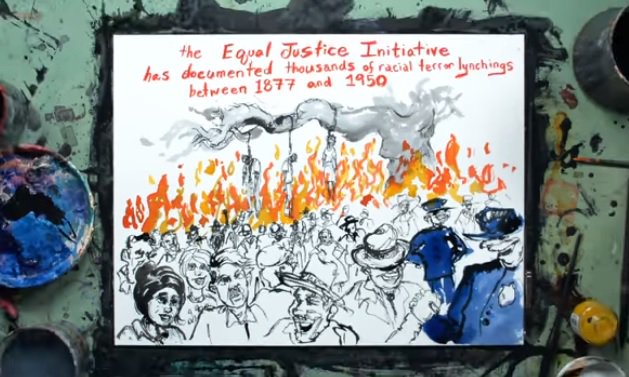 the Equal Justice Initiative
has documented thousands of racial terror lynchings
between 1877 and 1950